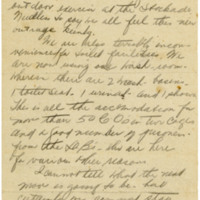 out door exercise at the Stockade
Needless to say we all feel this new
outrage keenly.
We are being terribly incon-
venienced for want facilities. We
are now using one wash room
wherein there are 2 wash basins,
1 toilet seat, 1 urinal and 1 shower
This is all the accomodation for
more than 50 C.O.s in two cages
and a good number of prisoners
from the
for various other reasons
I cannot tell what the next
move is going to be. but
certainly we cannot stay